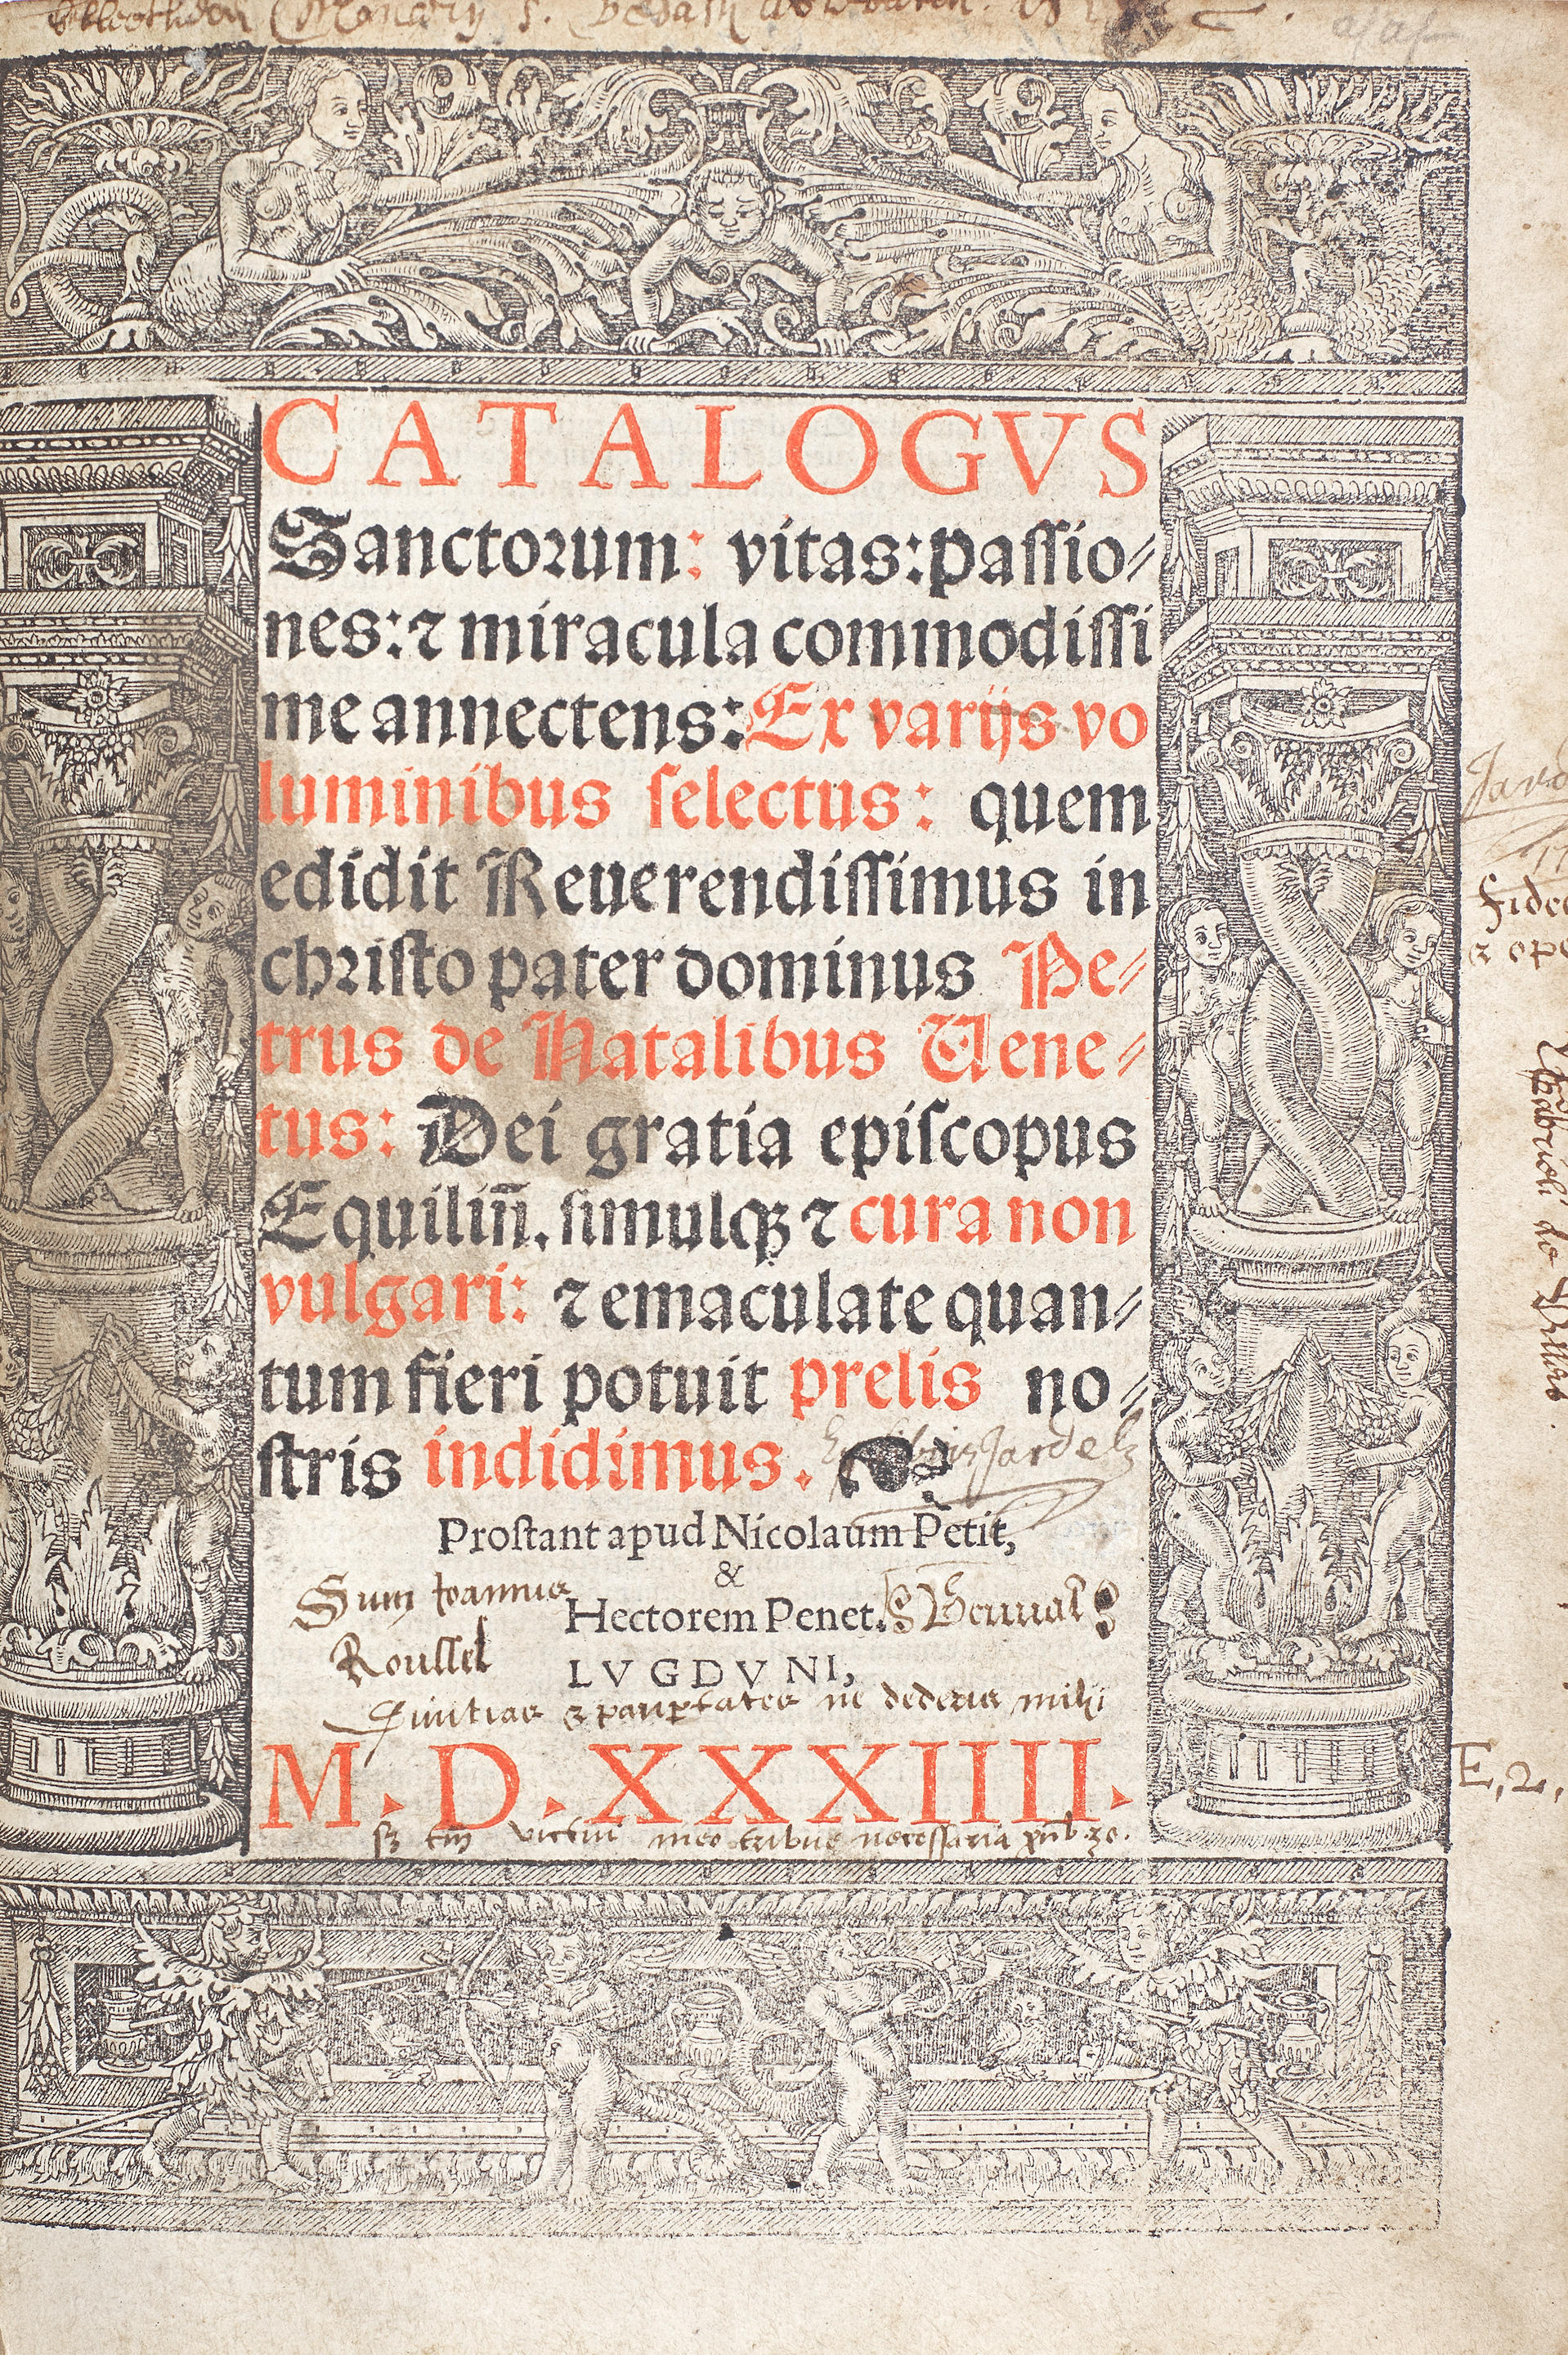 CATALOGVS
Sanctoꝛum: vitas: paſſio⸗
nes: ⁊ miracula commodiſſi
me annectens: Ex varijs vo
luminibus ſelectus: quem
edidit Reuerendiſſimus in
chꝛiſto pater dominus Pe⸗
trus de Natalibus Uene⸗
tus: Dei gratia epiſcopus
Equilin̄. ſimulqꝫ ⁊ cura non
vulgari: ⁊ emaculate quan⸗
tum fieri potuit prelis no⸗
ſtris indidimus.
Ex libris Jardel
Proſtant apud Nicolaum Petit,
&
Sum Joannis
Hectorem Penet.
Rouſſel
LVGDVNI,
Diuitias & paupertates ne dederis mihi
M. D. XXXIIII.
victui meo tribue neceſſaria
E, 2,